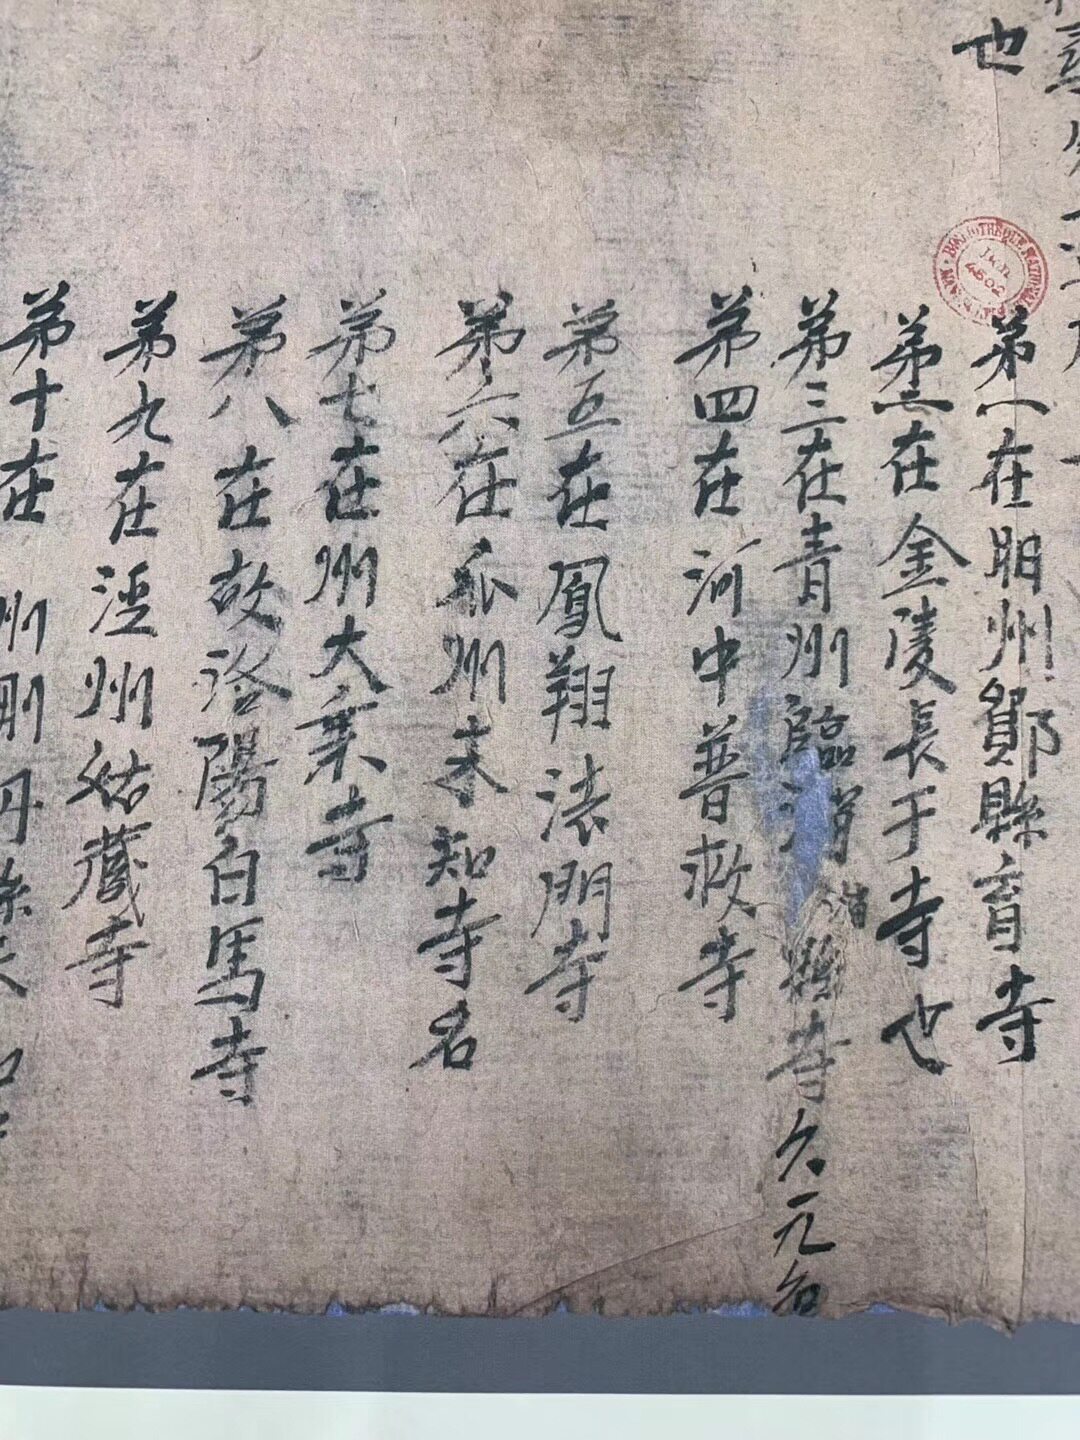 也
第一在明州鄮縣育寺
第二在金陵長干寺也
第三在青州臨淄縣寺久无名
第四在河中普救寺
第五在鳳翔法門寺
第六在瓜州未知寺名
第七在州大乘寺
第八在故洛陽白馬寺
第九在涇州姑藏寺
第十在 州刪丹縣
BIBLIOTHEQUE NATIONALE
4502